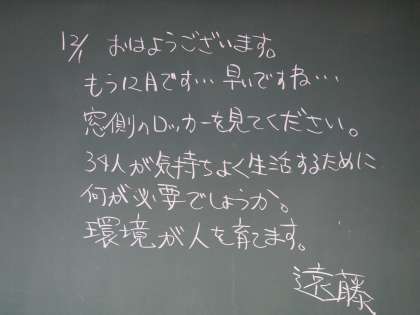 12/1 おはようございます。
もう12月です…早いですね…
窓側のロッカーを見てください。
34人が気持ちよく生活するために
何が必要でしょうか。
環境が人を育てます。
遠藤